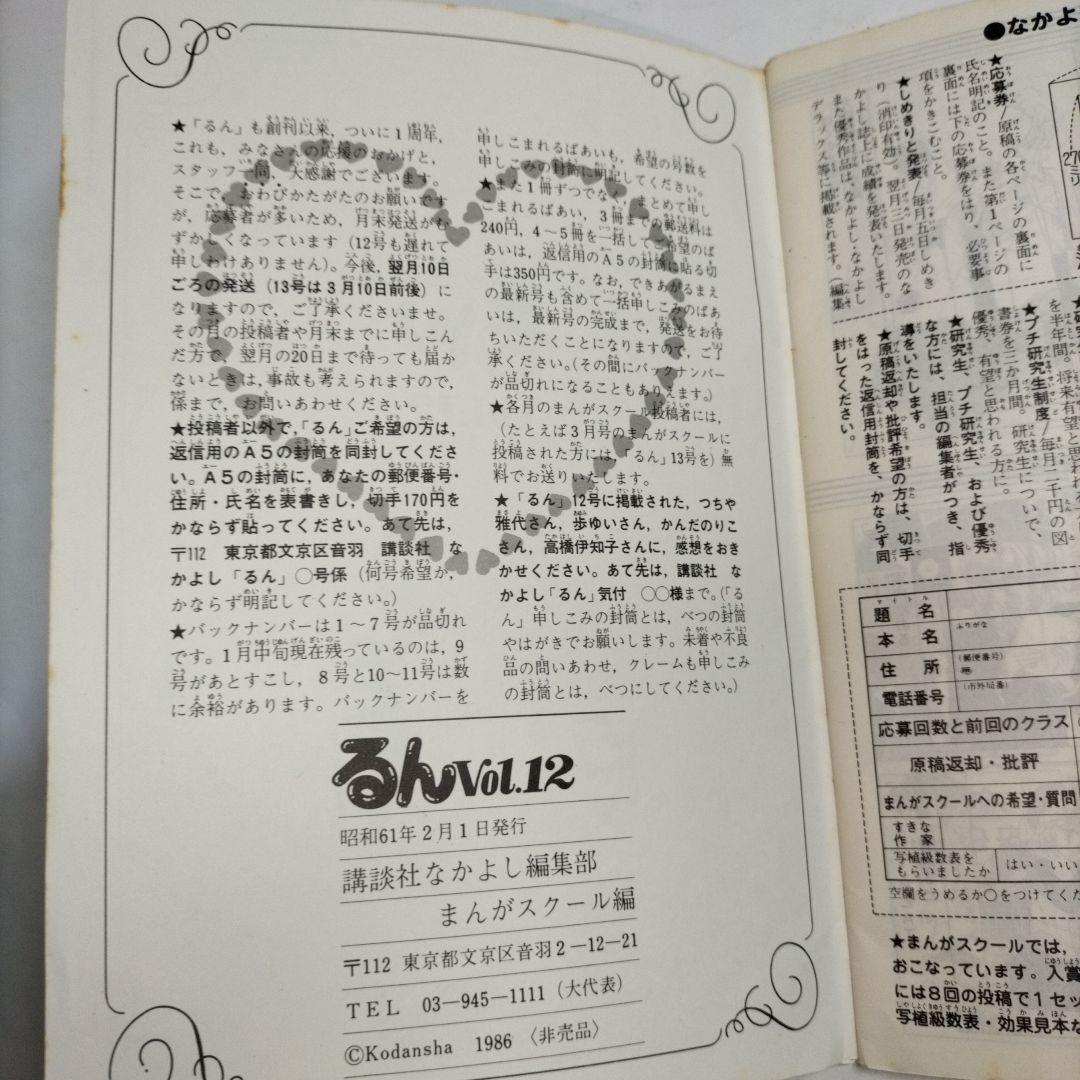 ★「るん」も創刊以来，ついに1周年，
これも，みなさんの応援のおかげと，
スタッフ一同，大感謝でございます。
そこで，おわびかたがたのお願いです
が，応募者が多いため，月末発送がむ
ずかしくなっています（12号も遅れて
申しわけありません）。今後，翌月10日
ごろの発送（13号は3月10日前後）に
なりますので，ご了承くださいませ。
その月の投稿者や月末までに申しこん
だ方で，翌月の20日まで待っても届か
ないときは，事故も考えられますので，
係まで，お問いあわせください。
★投稿者以外で，「るん」ご希望の方は，
返信用のA5の封筒を同封してくださ
い。A5の封筒に，あなたの郵便番号・
住所・氏名を表書きし，切手170円を
かならず貼ってください。あて先は，
〒112 東京都文京区音羽 講談社 な
かよし「るん」○号係（何号希望か，
かならず明記してください。）
★バックナンバーは1〜7号が品切れ
です。1月中旬現在残っているのは，9
号があとすこし，8号と10〜11号は数
に余裕があります。バックナンバーを
申しこまれるばあいも，希望の号数を
申しこみの封筒に明記してください。
★また1冊ずつでなく，まとめて申し
こまれるばあい，3冊までの郵送料は
240円，4〜5冊を一括してご希望のば
あいは，返信用のA5の封筒に貼る切
手は350円です。なお，できあがるまえ
の最新号も含めて一括申しこみのばあ
いは，最新号の完成まで，発送をお待
ちいただくことになりますので，ご了
承ください。（その間にバックナンバー
が品切れになることもありえます。）
★各月のまんがスクール投稿者には，
（たとえば3月号のまんがスクールに
投稿された方には，「るん」13号を）無
料でお送りいたします。
★「るん」12号に掲載された，つちや
雅代さん，歩ゆいさん，かんだのりこ
さん，高橋伊知子さんに，感想をおき
かせください。あて先は，講談社 な
かよし「るん」気付 ○○様まで。（「る
ん」申しこみの封筒とは，べつの封筒
やはがきでお願いします。未着や不良
品の問いあわせ，クレームも申しこみ
の封筒とは，べつにしてください。）
るんVol.12
昭和61年2月1日発行
講談社なかよし編集部
まんがスクール編
〒112 東京都文京区音羽2－12－21
TEL 03－945－1111（大代表）
©Kodansha 1986〈非売品〉
●なかよ
★応募券／原稿の各ページの裏面に
氏名明記のこと。また第1ページの
裏面には下の応募券をはり，必要事
項をかきこむこと。
★しめきりと発表／毎月五日しめき
り（消印有効）。翌月三日発売のな
かよし誌上に成績を発表いたします。
また優秀作品は，なかよし・なかよし
デラックス等に掲載されます。編集
を半年間。将来有望と思われる
★プチ研究生制度／毎月二千円の図
書券を三か月間。研究生についで，
優秀，有望と思われる方に。
★研究生，プチ研究生，および優秀
な方には，担当の編集者がつき，指
導をいたします。
★原稿返却や批評希望の方は，切手
をはった返信用封筒を，かならず同
封してください。
270
ミリ
題名
タイトル
本名
ふりがな
住所
（郵便番号）
電話番号
（市外局番）
応募回数と前回のクラス
原稿返却・批評
まんがスクールへの希望・質問
すきな
作家
写植級数表を
もらいましたか
はい・いい
空欄をうめるか○をつけてくだ
★まんがスクールでは，
おこなっています。入賞
には8回の投稿で1セッ
写植級数表・効果見本な